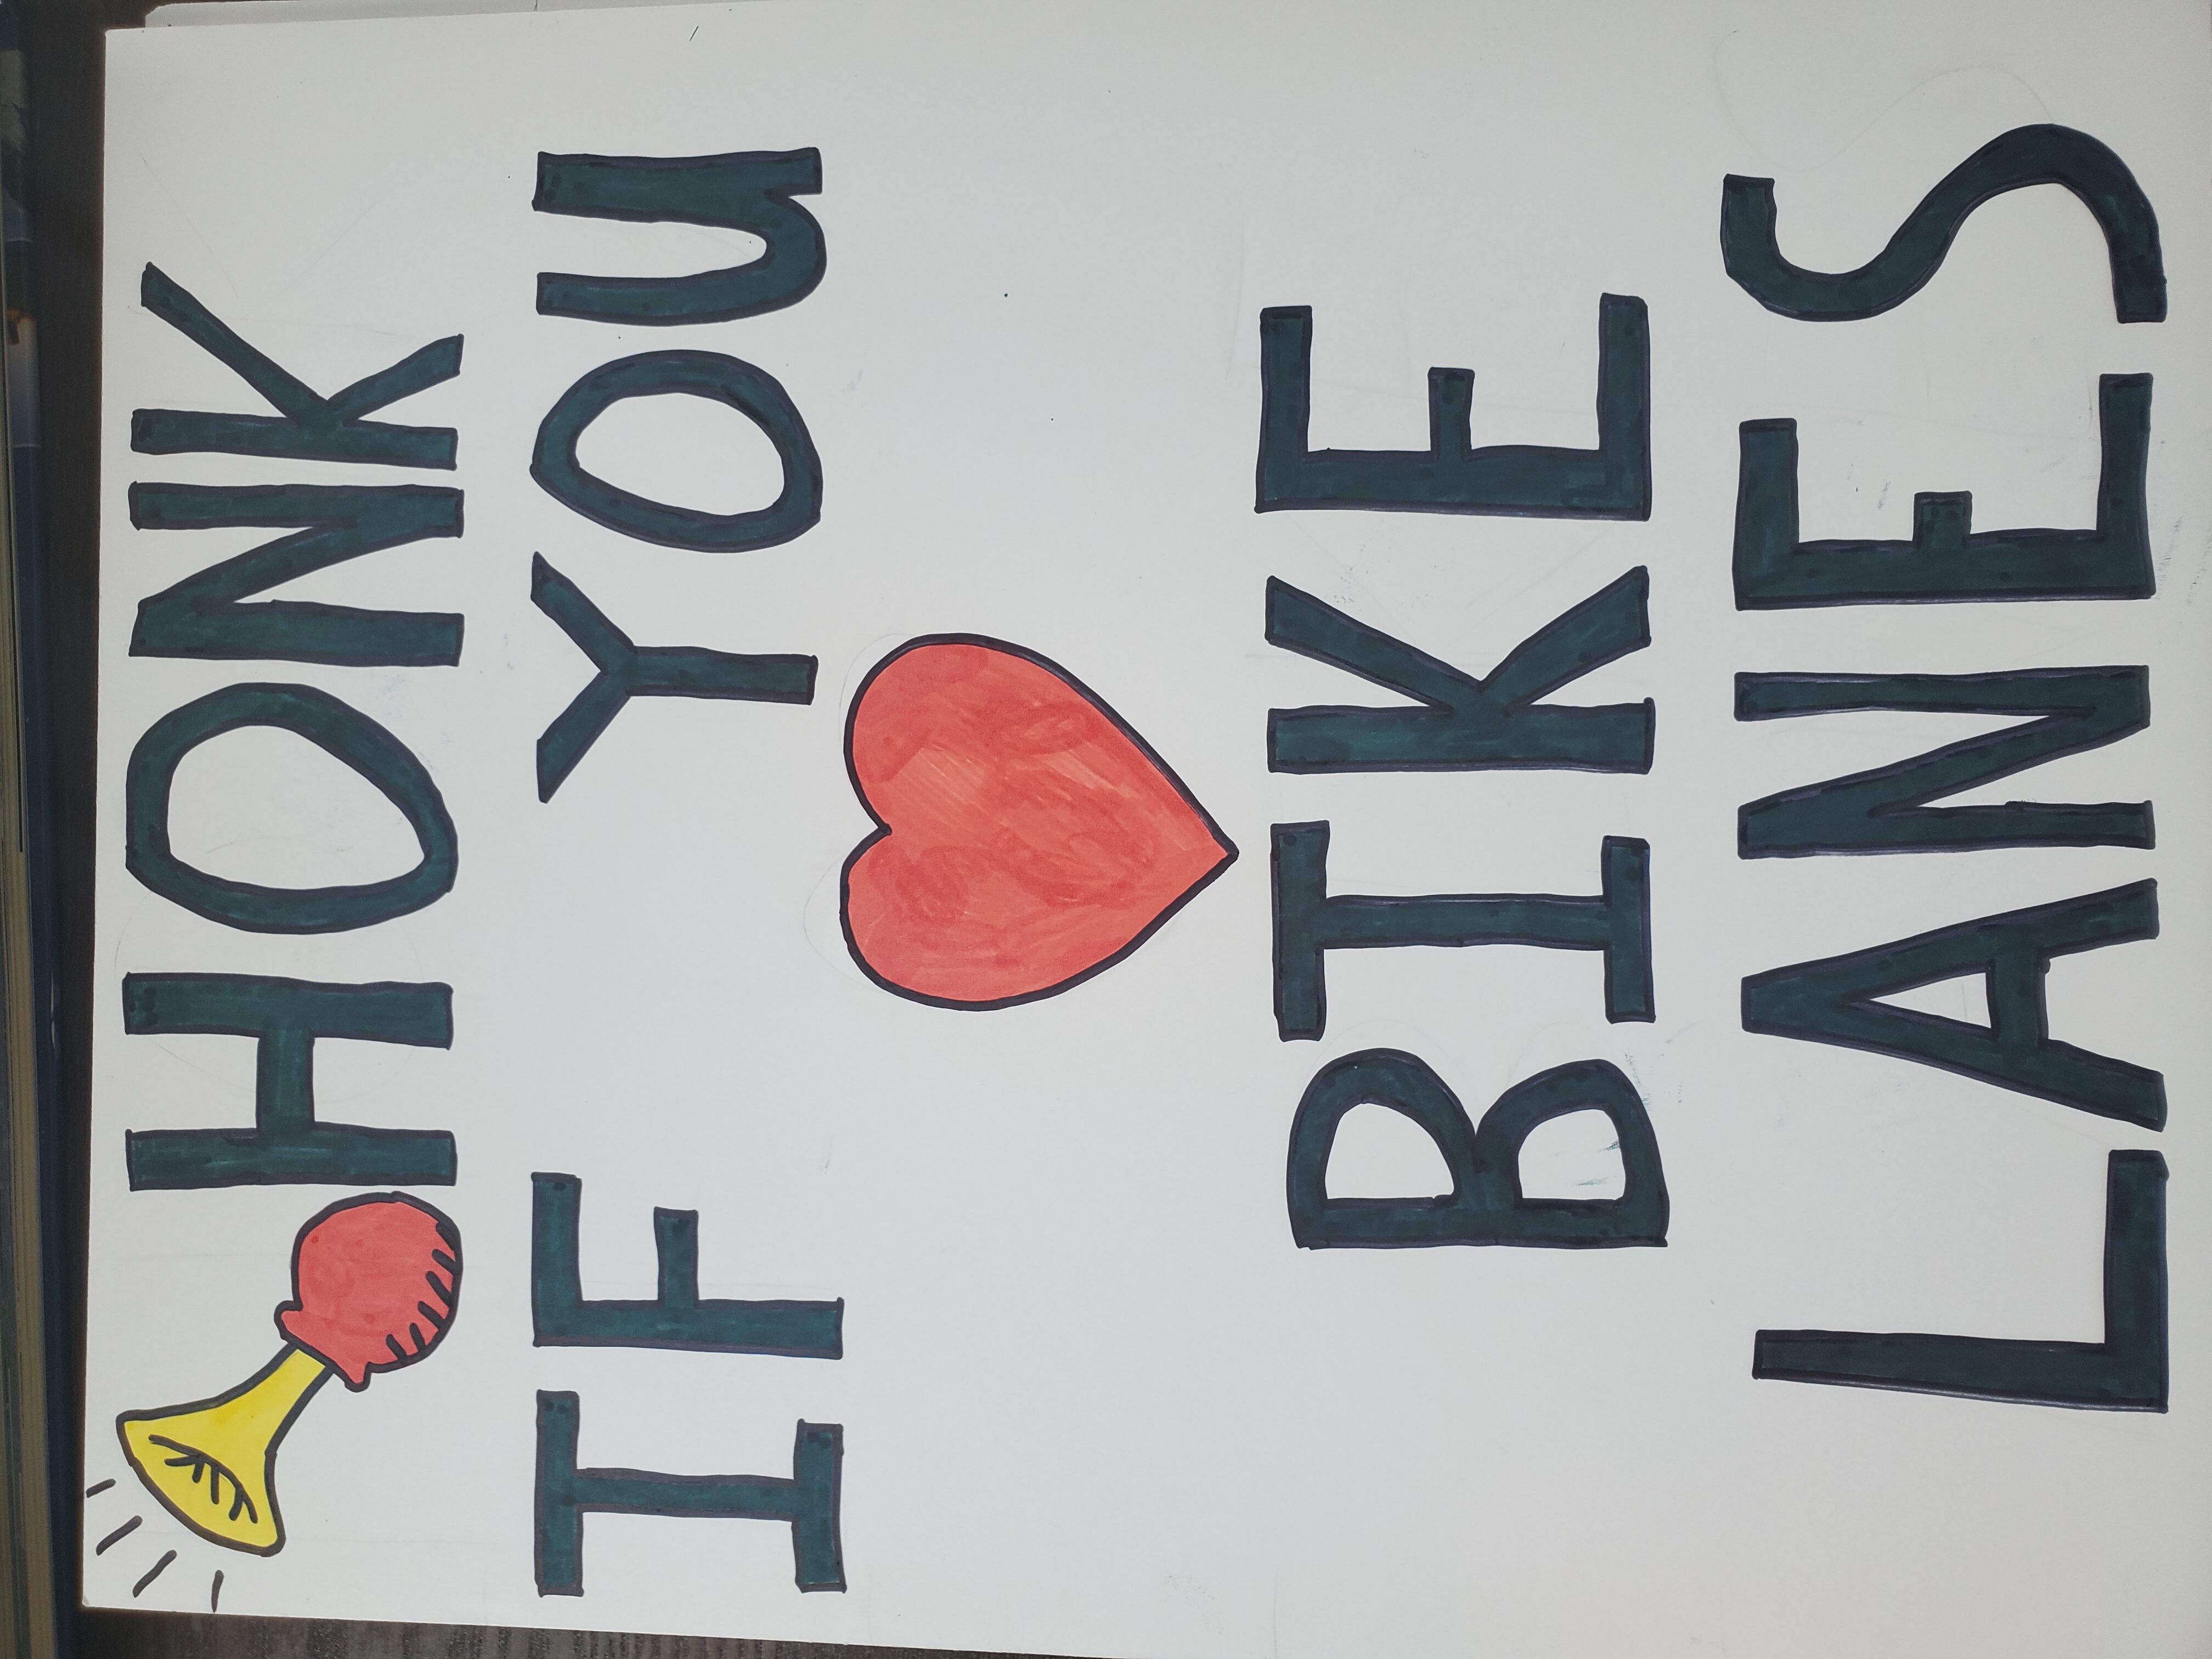 HONK
IF YOU
BIKE
LANES